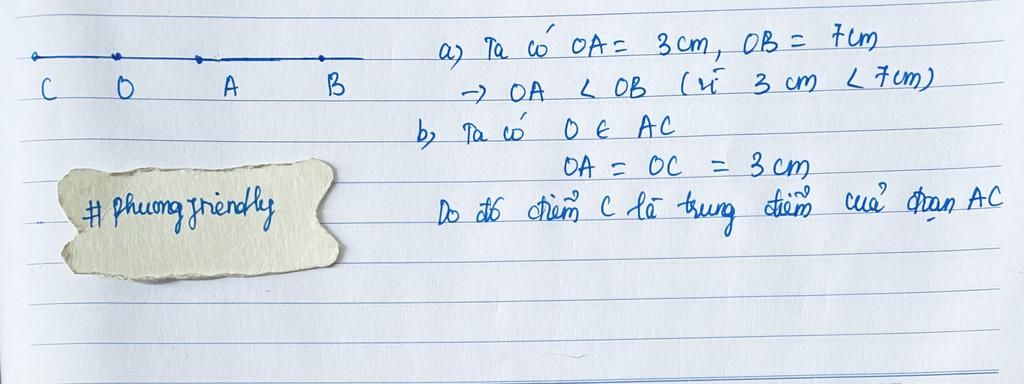 C O A B
a) Ta có OA = 3cm, OB = 7cm
→ OA < OB (vì 3 cm < 7cm)
b, Ta có O ∈ AC
OA = OC = 3 cm
Do đó điểm C là trung điểm cuả đoạn AC
# phuongfriendly